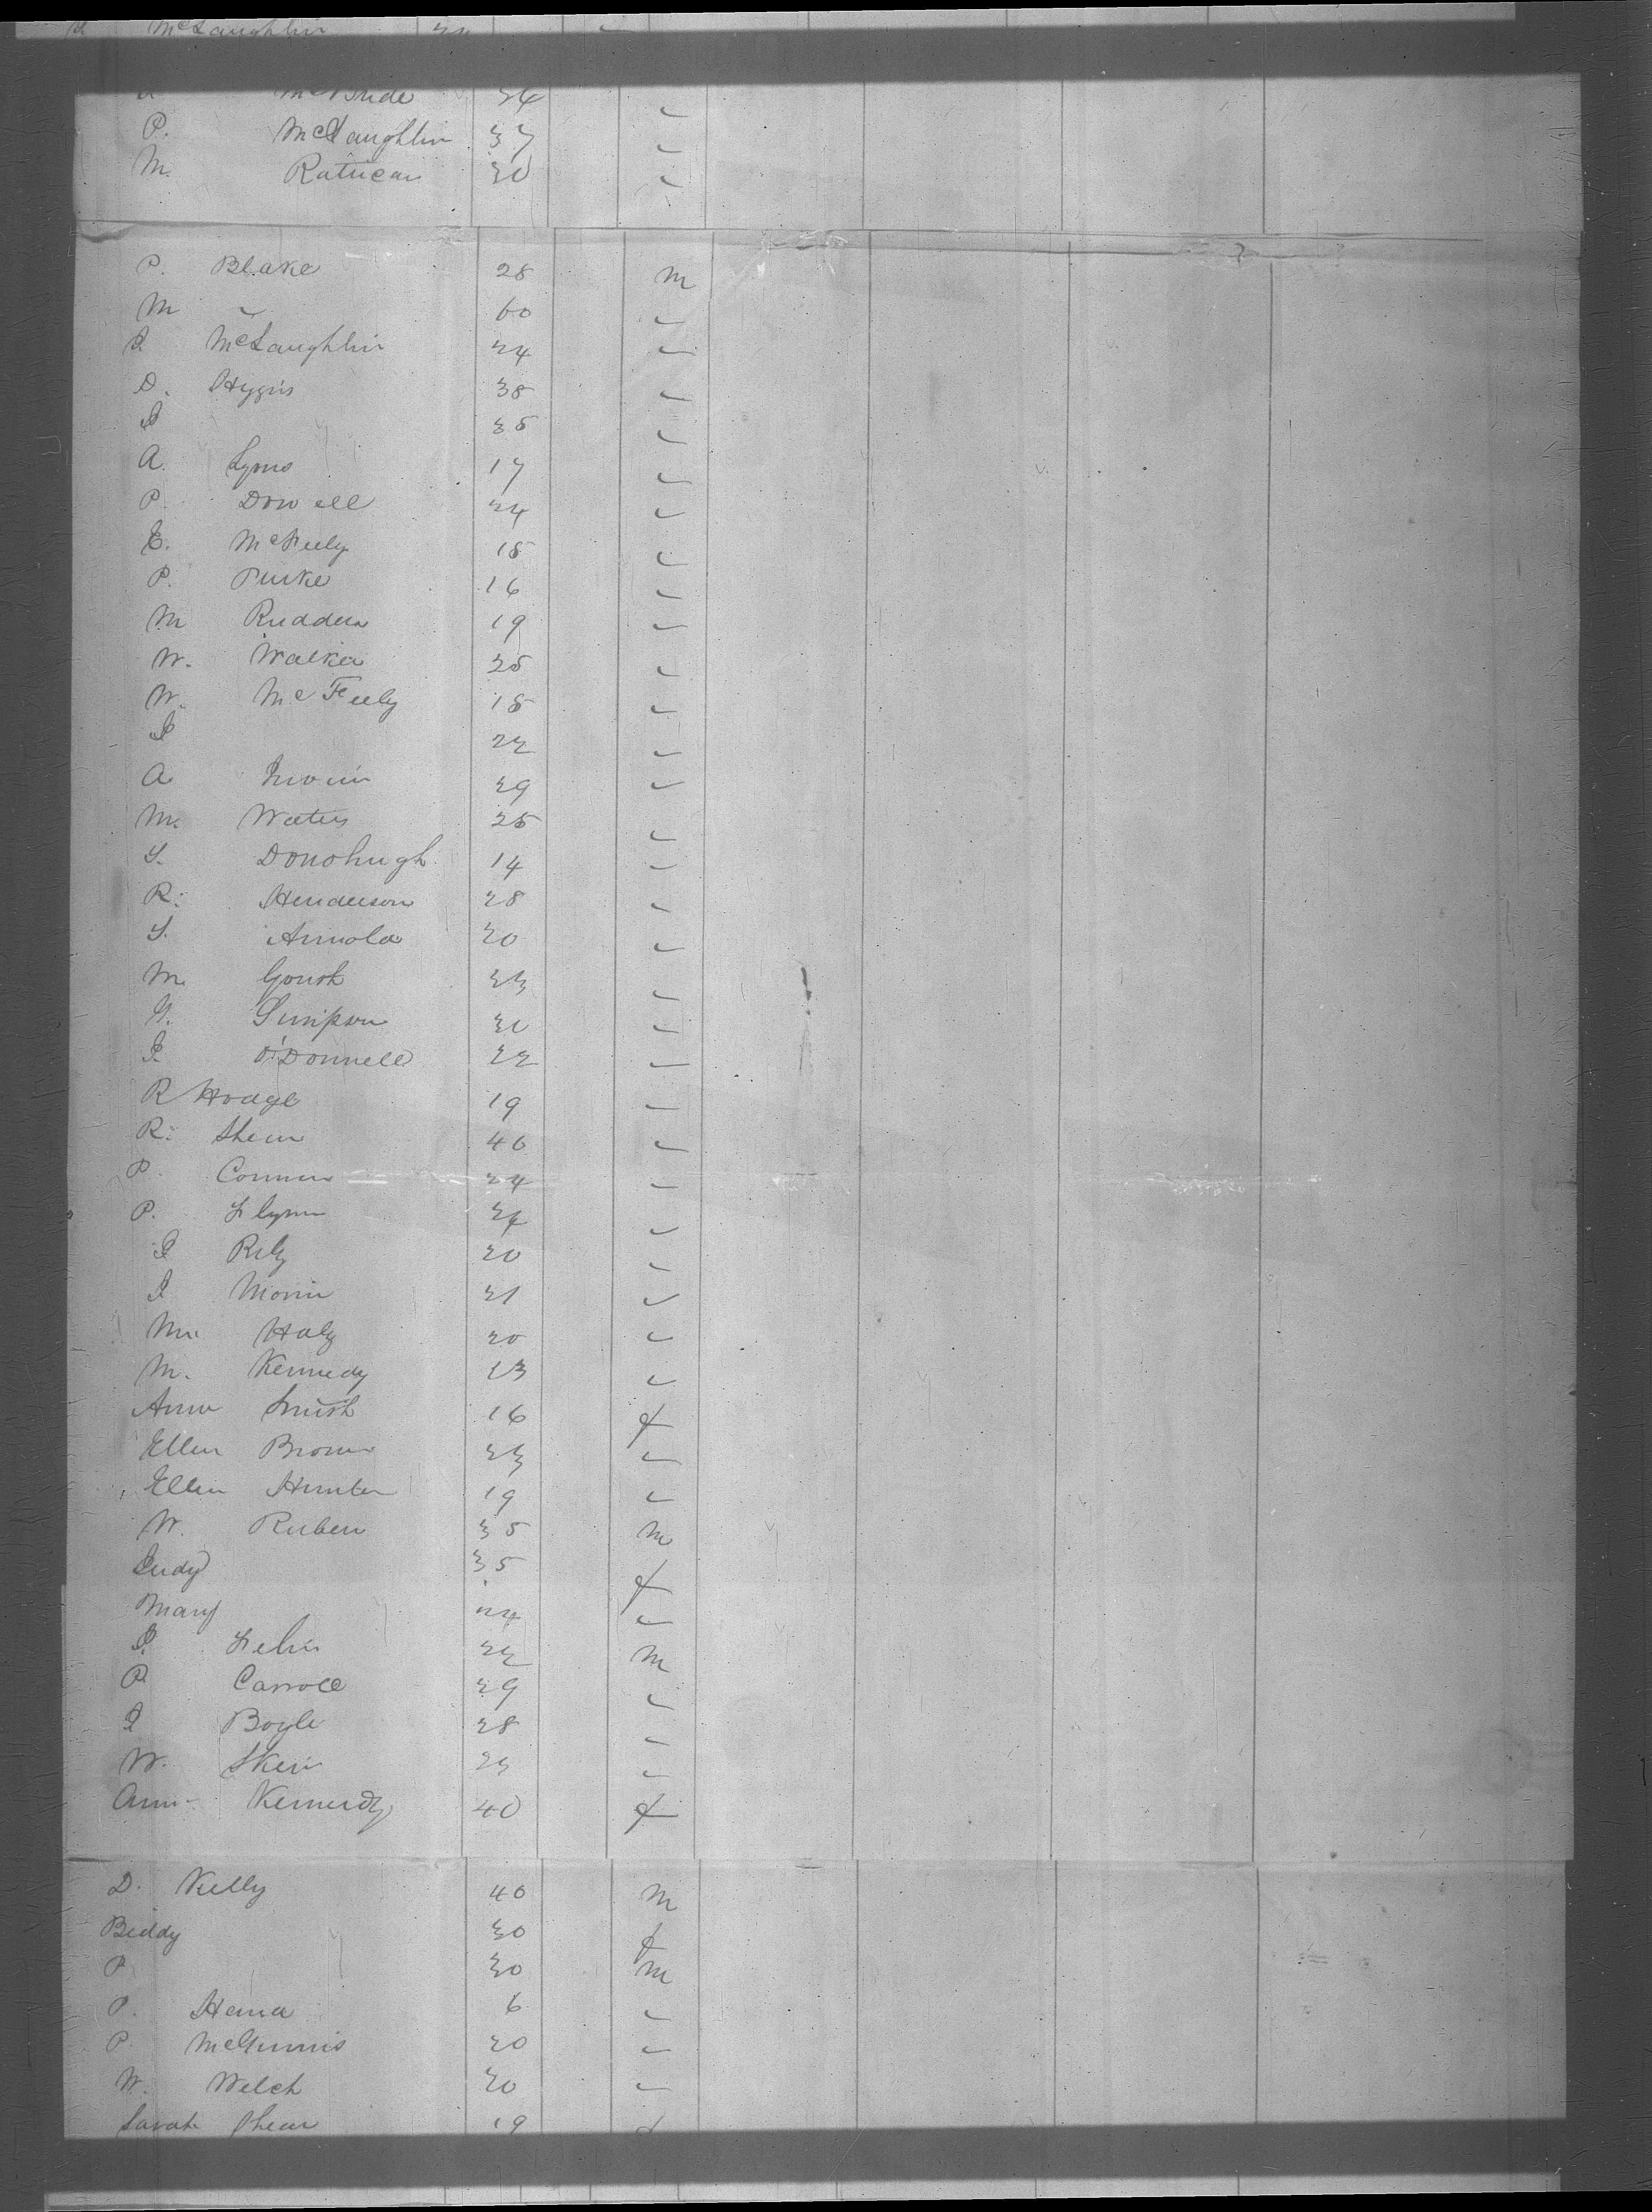 McLaughlin
McBride 34
P. McLaughlin 37
M. 30
P. Blake 28 m
M 60
McLaughlin 24
D. Higgins 38
35
A. Lyons 17
P. Dowell 24
E. McFeely 18
P. Burke 16
M Rudden 19
W. Walker 25
W. McFeely 18
J 22
A 29
M. Waters 25
S. Donohugh 14
R. Henderson 28
S. Arnold 20
M. 23
G. Simpson 30
J. O'Donnell 22
R Hoage 19
R. Shean 40
P. Connor 24
P. Flynn 24
J Rily 20
J Morin 21
M. Haly 20
M. Kennedy 23
Ann Smith 16 f
Ellen Brown 23
Ellen Hunter 19
W. Ruben 35 m
Judy 35 f
Mary 24
J. 22 m
P Carroll 29
J Boyle 28
W. 23
Ann Kennedy 40 f
D. Kelly 40 m
Biddy 30 f
P 30 m
P. Hana 6
P. McGinnis 20
W. Welch 20
Sarah Shean 19